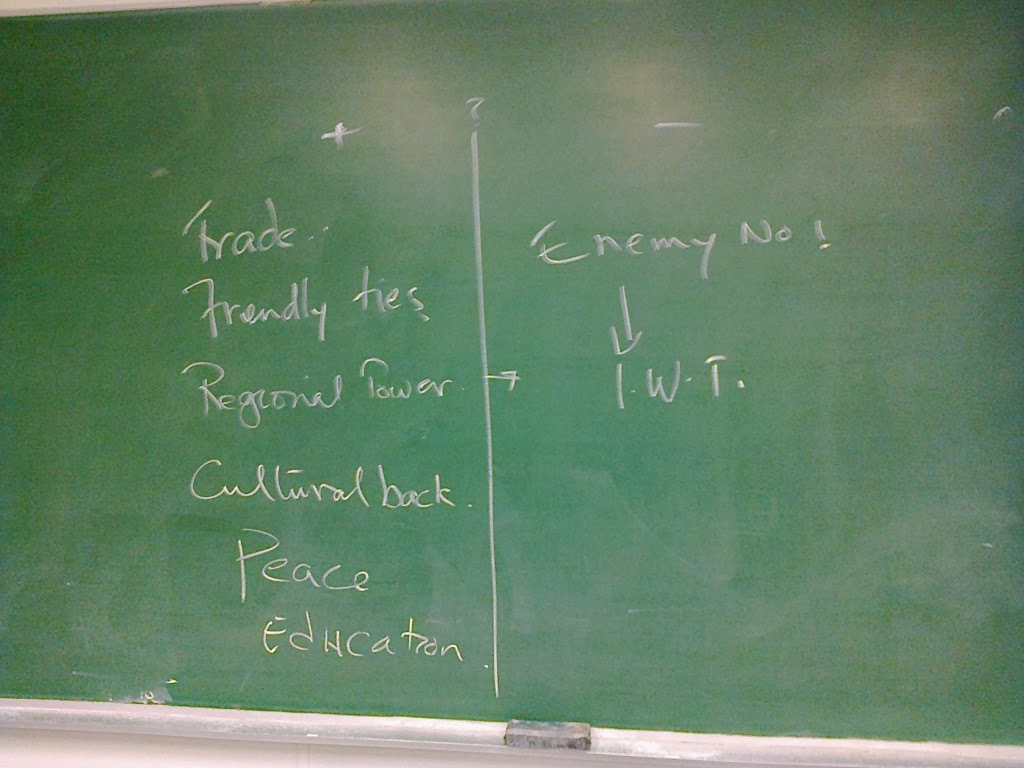 ?
+
−
Trade..
Friendly ties
Regional Power →
Cultural back.
Peace
Education.
Enemy No!
↓
I.W.T.